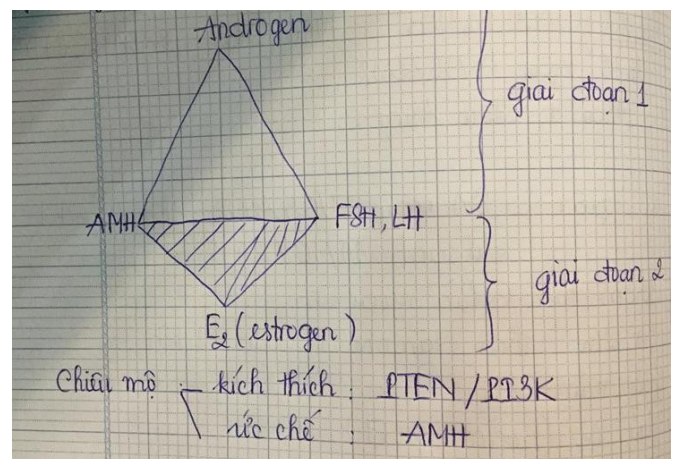 Androgen
giai đoạn 1
AMH
FSH, LH
giai đoạn 2
E2 (estrogen)
Chiêu mộ - kích thích : PTEN / PI3K
ức chế : AMH